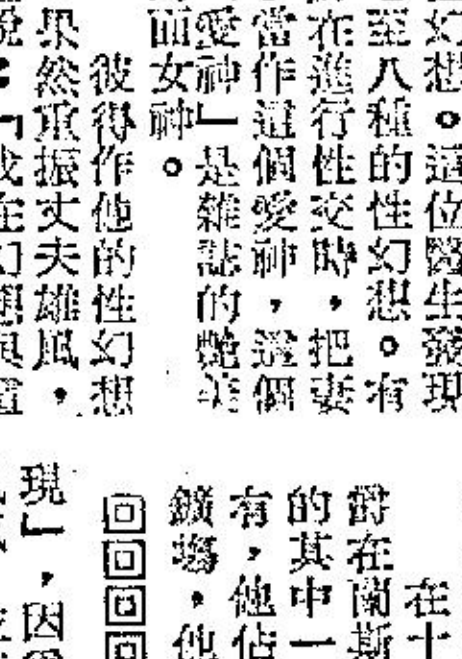 幻想。這位醫生發現
至八種的性幻想。有
在進行性交時,把妻
當作這個愛神,這個
愛神」是雜誌的艷美
面女神。
彼得作他的性幻想
果然重振丈夫雄風,
在十
爵在蘭斯
的其中一
有,他佔
鑛場,他
現」,因